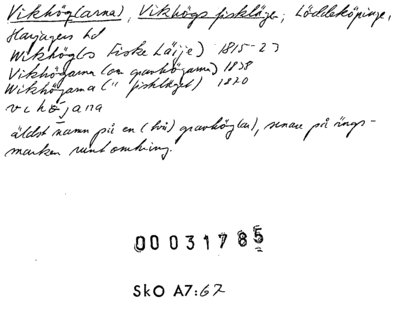 Vikhög(arna), Vikhögs fiskläge; Löddeköpinge,
Harjagers hd
Wikhög(s Fiske Läije) 1815-23
Vikhögarna (om gravhögarna) 1838
Wikhögarna (" fiskläget) 1820
vikøjana
äldst namn på en (två) gravhög(ar), senare på ängs-
marken runt omkring.
00031785
SkO A7:67